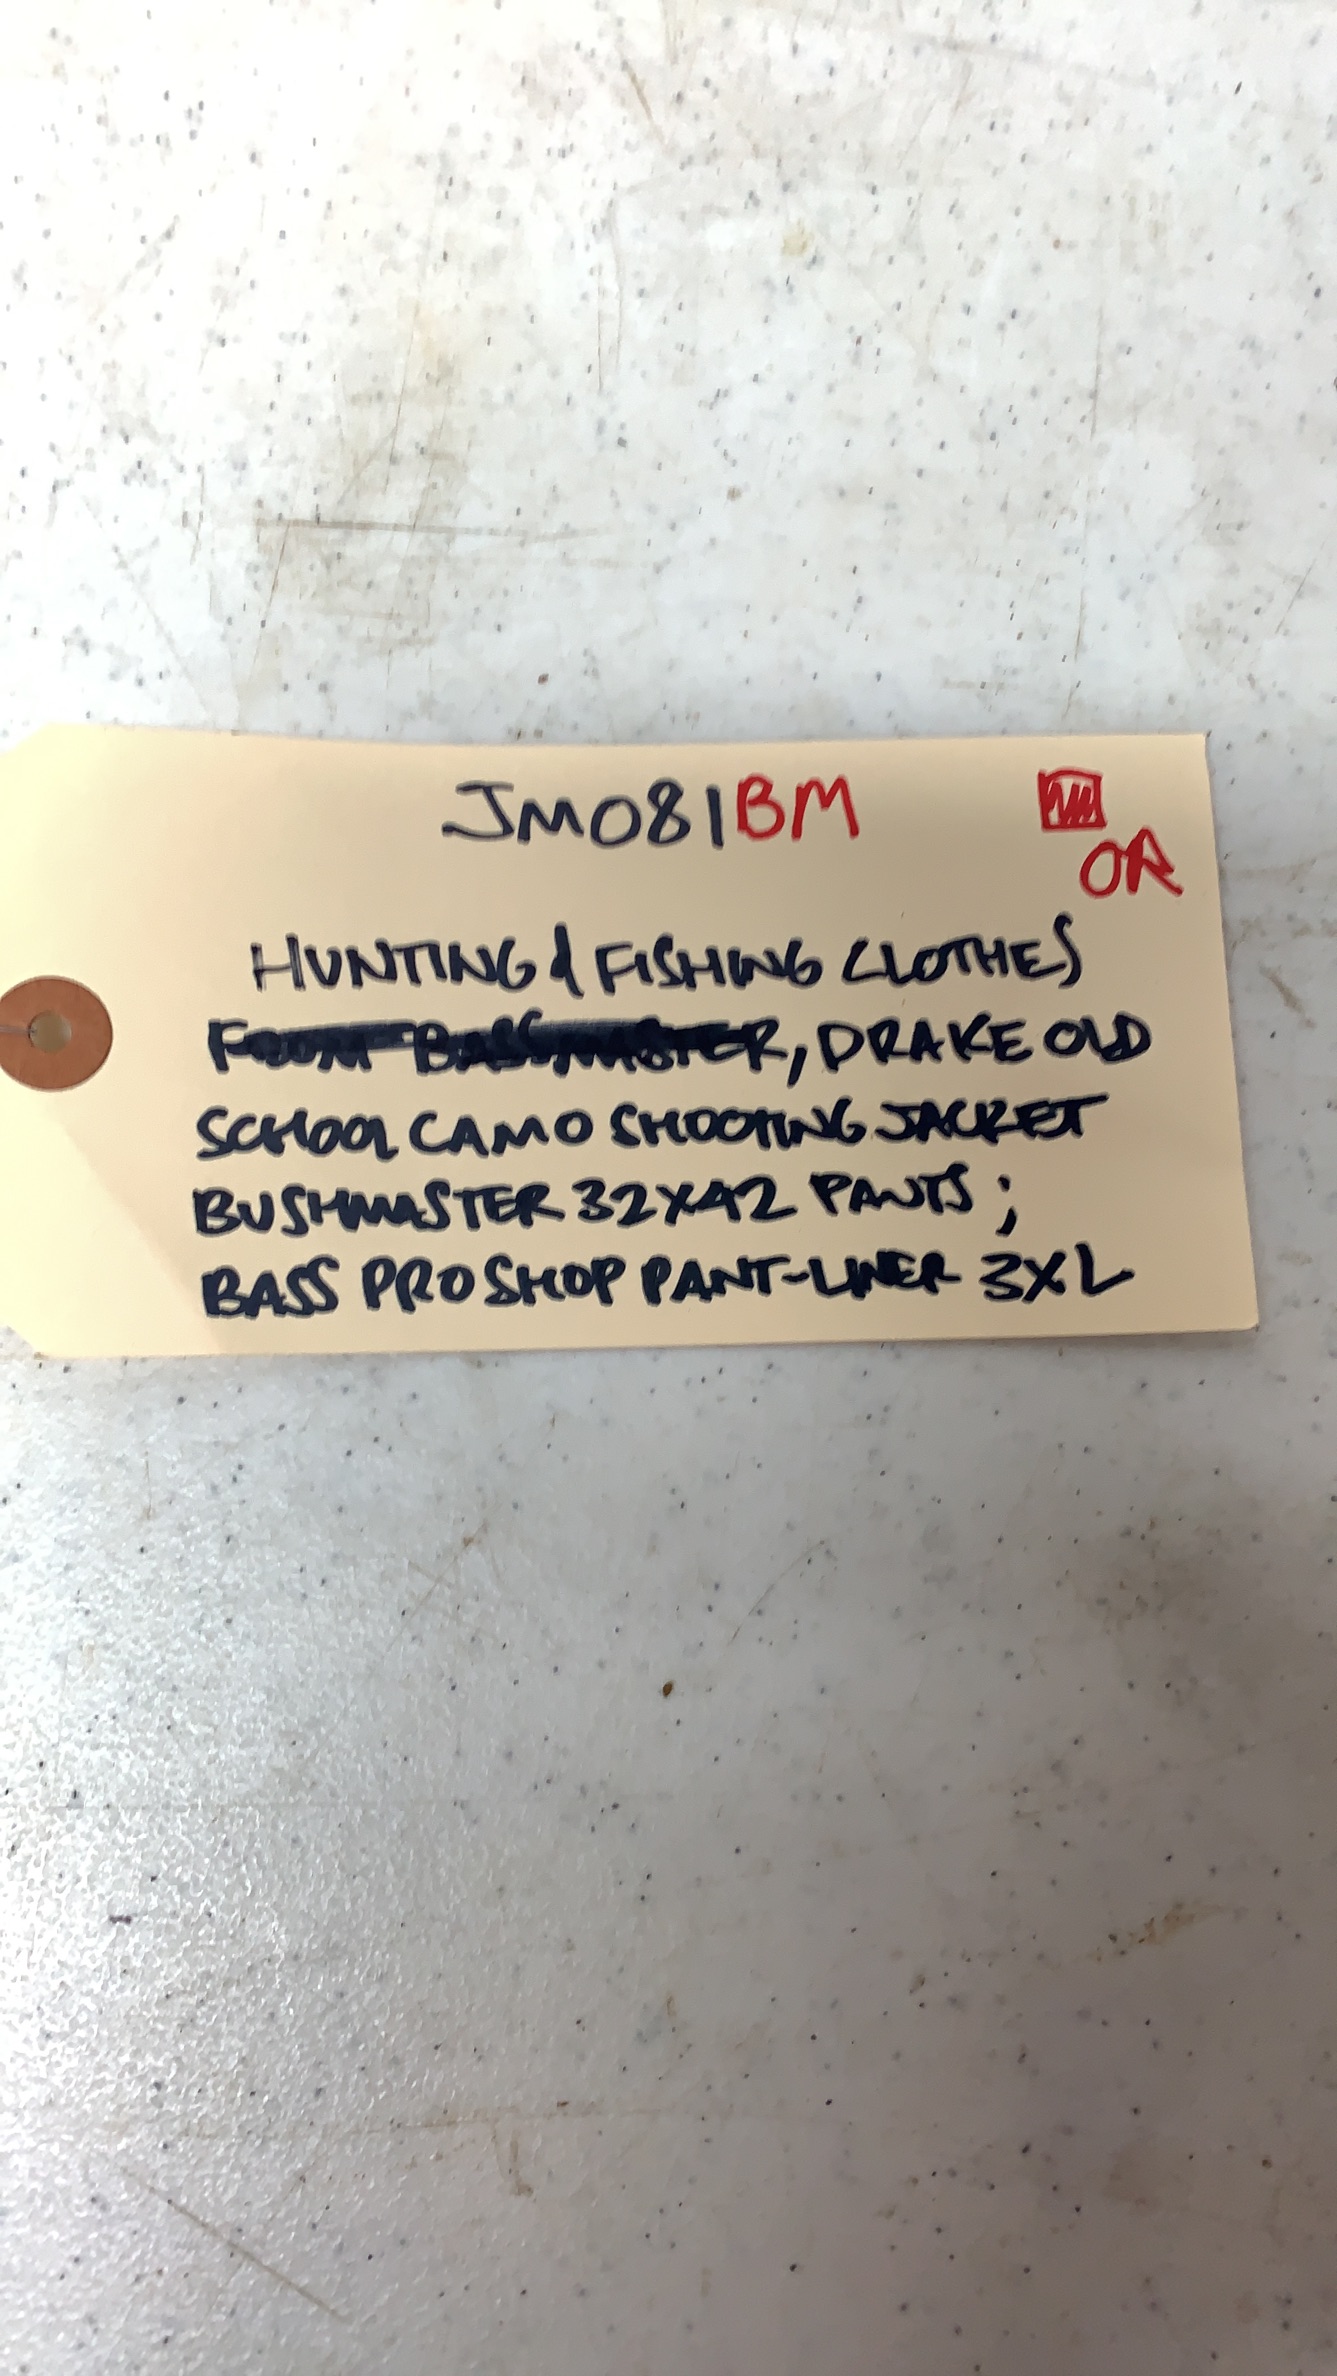 JM081BM
OR
HUNTING & FISHING CLOTHES
FROM BASSMASTER, DRAKE OLD
SCHOOL CAMO SHOOTING JACKET
BUSHMASTER 32X42 PANTS;
BASS PRO SHOP PANT-LINER 3XL